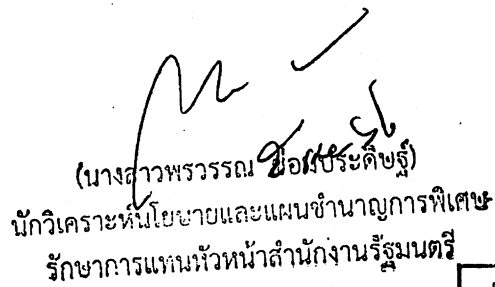 (นางสาวพรวรรณ ประดิษฐ์)
นักวิเคราะห์นโยบายและแผนชำนาญการพิเศษ
รักษาการแทนหัวหน้าสำนักงานรัฐมนตรี